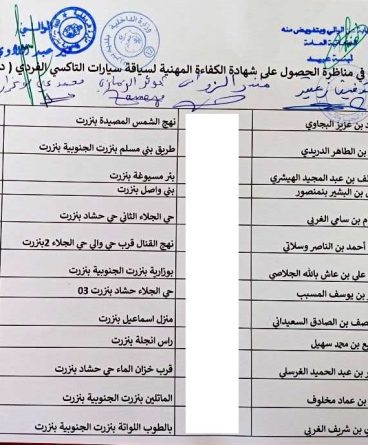 في مناظرة الحصول على شهادة الكفاءة المهنية لسياقة سيارات التاكسي الفردي
بن عزيز البجاوي نهج الشمس المصيدة بنزرت
بن الطاهر الدريدي طريق بني مسلم بنزرت الجنوبية بنزرت
بن عبد المجيد الهيشري بئر مسيوغة بنزرت
بن البشير بنمنصور بني واصل بنزرت
بن سامي الغربي حي الجلاء الثاني حي حشاد بنزرت
أحمد بن الناصر وسلاتي نهج القنال قرب حي والي حي الجلاء 2بنزرت
علي بن عاش بالله الجلاصي بوزارية بنزرت الجنوبية بنزرت
بن يوسف المسبب حي الجلاء حشاد بنزرت 03
بن الصادق السعيداني منزل اسماعيل بنزرت
بن محمد سهيل راس انجلة بنزرت
بن عبد الحميد الغرسلي قرب خزان الماء حي حشاد بنزرت
بن عماد مخلوف الماتلين بنزرت الجنوبية بنزرت
بن شريف الغربي بالطوب اللواتة بنزرت الجنوبية بنزرت